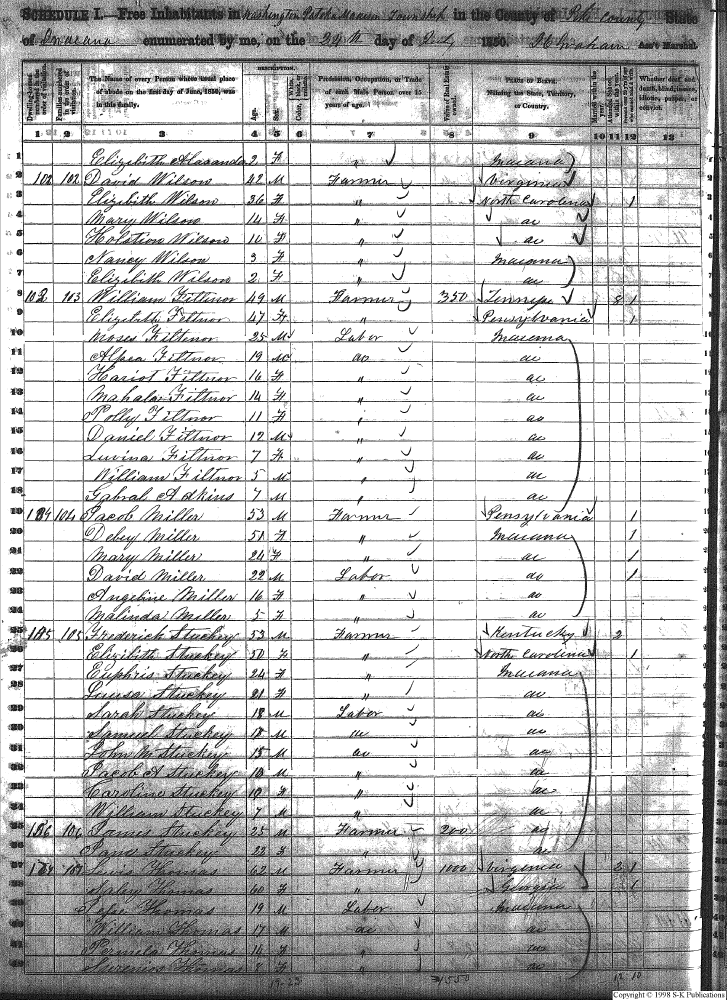 SCHEDULE I.—Free Inhabitants in Washington Patoka Madison Township in the County of Pike County State
of Indiana enumerated by me, on the 29th day of 1850. Graham Ass't Marshal.
DESCRIPTION.
Dwelling-houses numbered in the order of visitation.
Families numbered in the order of visitation.
The Name of every Person whose usual place of abode on the first day of June, 1850, was in this family.
Age.
Sex.
Color,
Profession, Occupation, or Trade of each Male Person over 15 years of age.
Value of Real Estate owned.
PLACE OF BIRTH. Naming the State, Territory, or Country.
Married within the year.
Whether deaf and dumb, blind, insane, idiotic, pauper, or convict.
1 2 3 4 5 6 7 8 9 10 11 12 13
1 Elizibeth Alaxanda 2 F " Indiana
2 102 102 David Wilson 42 M Farmer Virginia
3 Elizibeth Wilson 36 F " North Carolina 1
4 Mary Wilson 14 F " do
5 Holstion Wilson 10 F " do
6 Nancy Wilson 3 F " Indiana
7 Elizibith Wilson 2 F " do
8 103 103 William Filtnor 49 M Farmer 350 Tennipe 1
9 Elizibeth Filtnor 47 F " Pensylvania 1
10 Moses Filtnor 25 M Labor Indiana
11 Alpia Filtnor 19 M do do
12 Hariot Filtnor 16 F " do
13 Mahala Filtnor 14 F " do
14 Polly Filtnor 11 F " do
15 Daniel Filtnor 12 M " do
16 Luvina Filtnor 7 F " do
17 William Filtnor 5 M " do
18 Gabral Adkins 7 M " do
19 104 104 Jacob Miller 53 M Farmer Pensylvania 1
20 Debey Miller 51 F " Indiana 1
21 Mary Miller 24 F " do 1
22 David Miller 22 M Labor do 1
23 Angeline Miller 16 F " do
24 Malinda Miller 5 F " do
25 105 105 Frederick Stuckey 53 M Farmer Kentucky 2
26 Elizibith Stuckey 50 F " North Carolina 1
27 Euphris Stuckey 24 F " Indiana
28 Louisa Stuckey 21 F " do
29 Sarah Stuckey 18 M Labor do
30 Samuel Stuckey 17 M do do
31 John W Stuckey 15 M do do
32 Jacob A Stuckey 10 M " do
33 Caroline Stuckey 10 F " do
34 William Stuckey 7 M " do
35 106 106 James Stuckey 25 M Farmer 200 do
36 Jane Stuckey 22 F " do
37 107 107 Lewis Thomas 62 M Farmer 1000 Virginia 2 1
38 Thomas 60 F " Georgia 1
39 Thomas 19 M Labor Indiana
40 William Thomas 17 M do do
41 Permela Thomas 14 F " do
42 Thomas F " do
19-23 1550 12 10
Copyright © 1998 S-K Publications